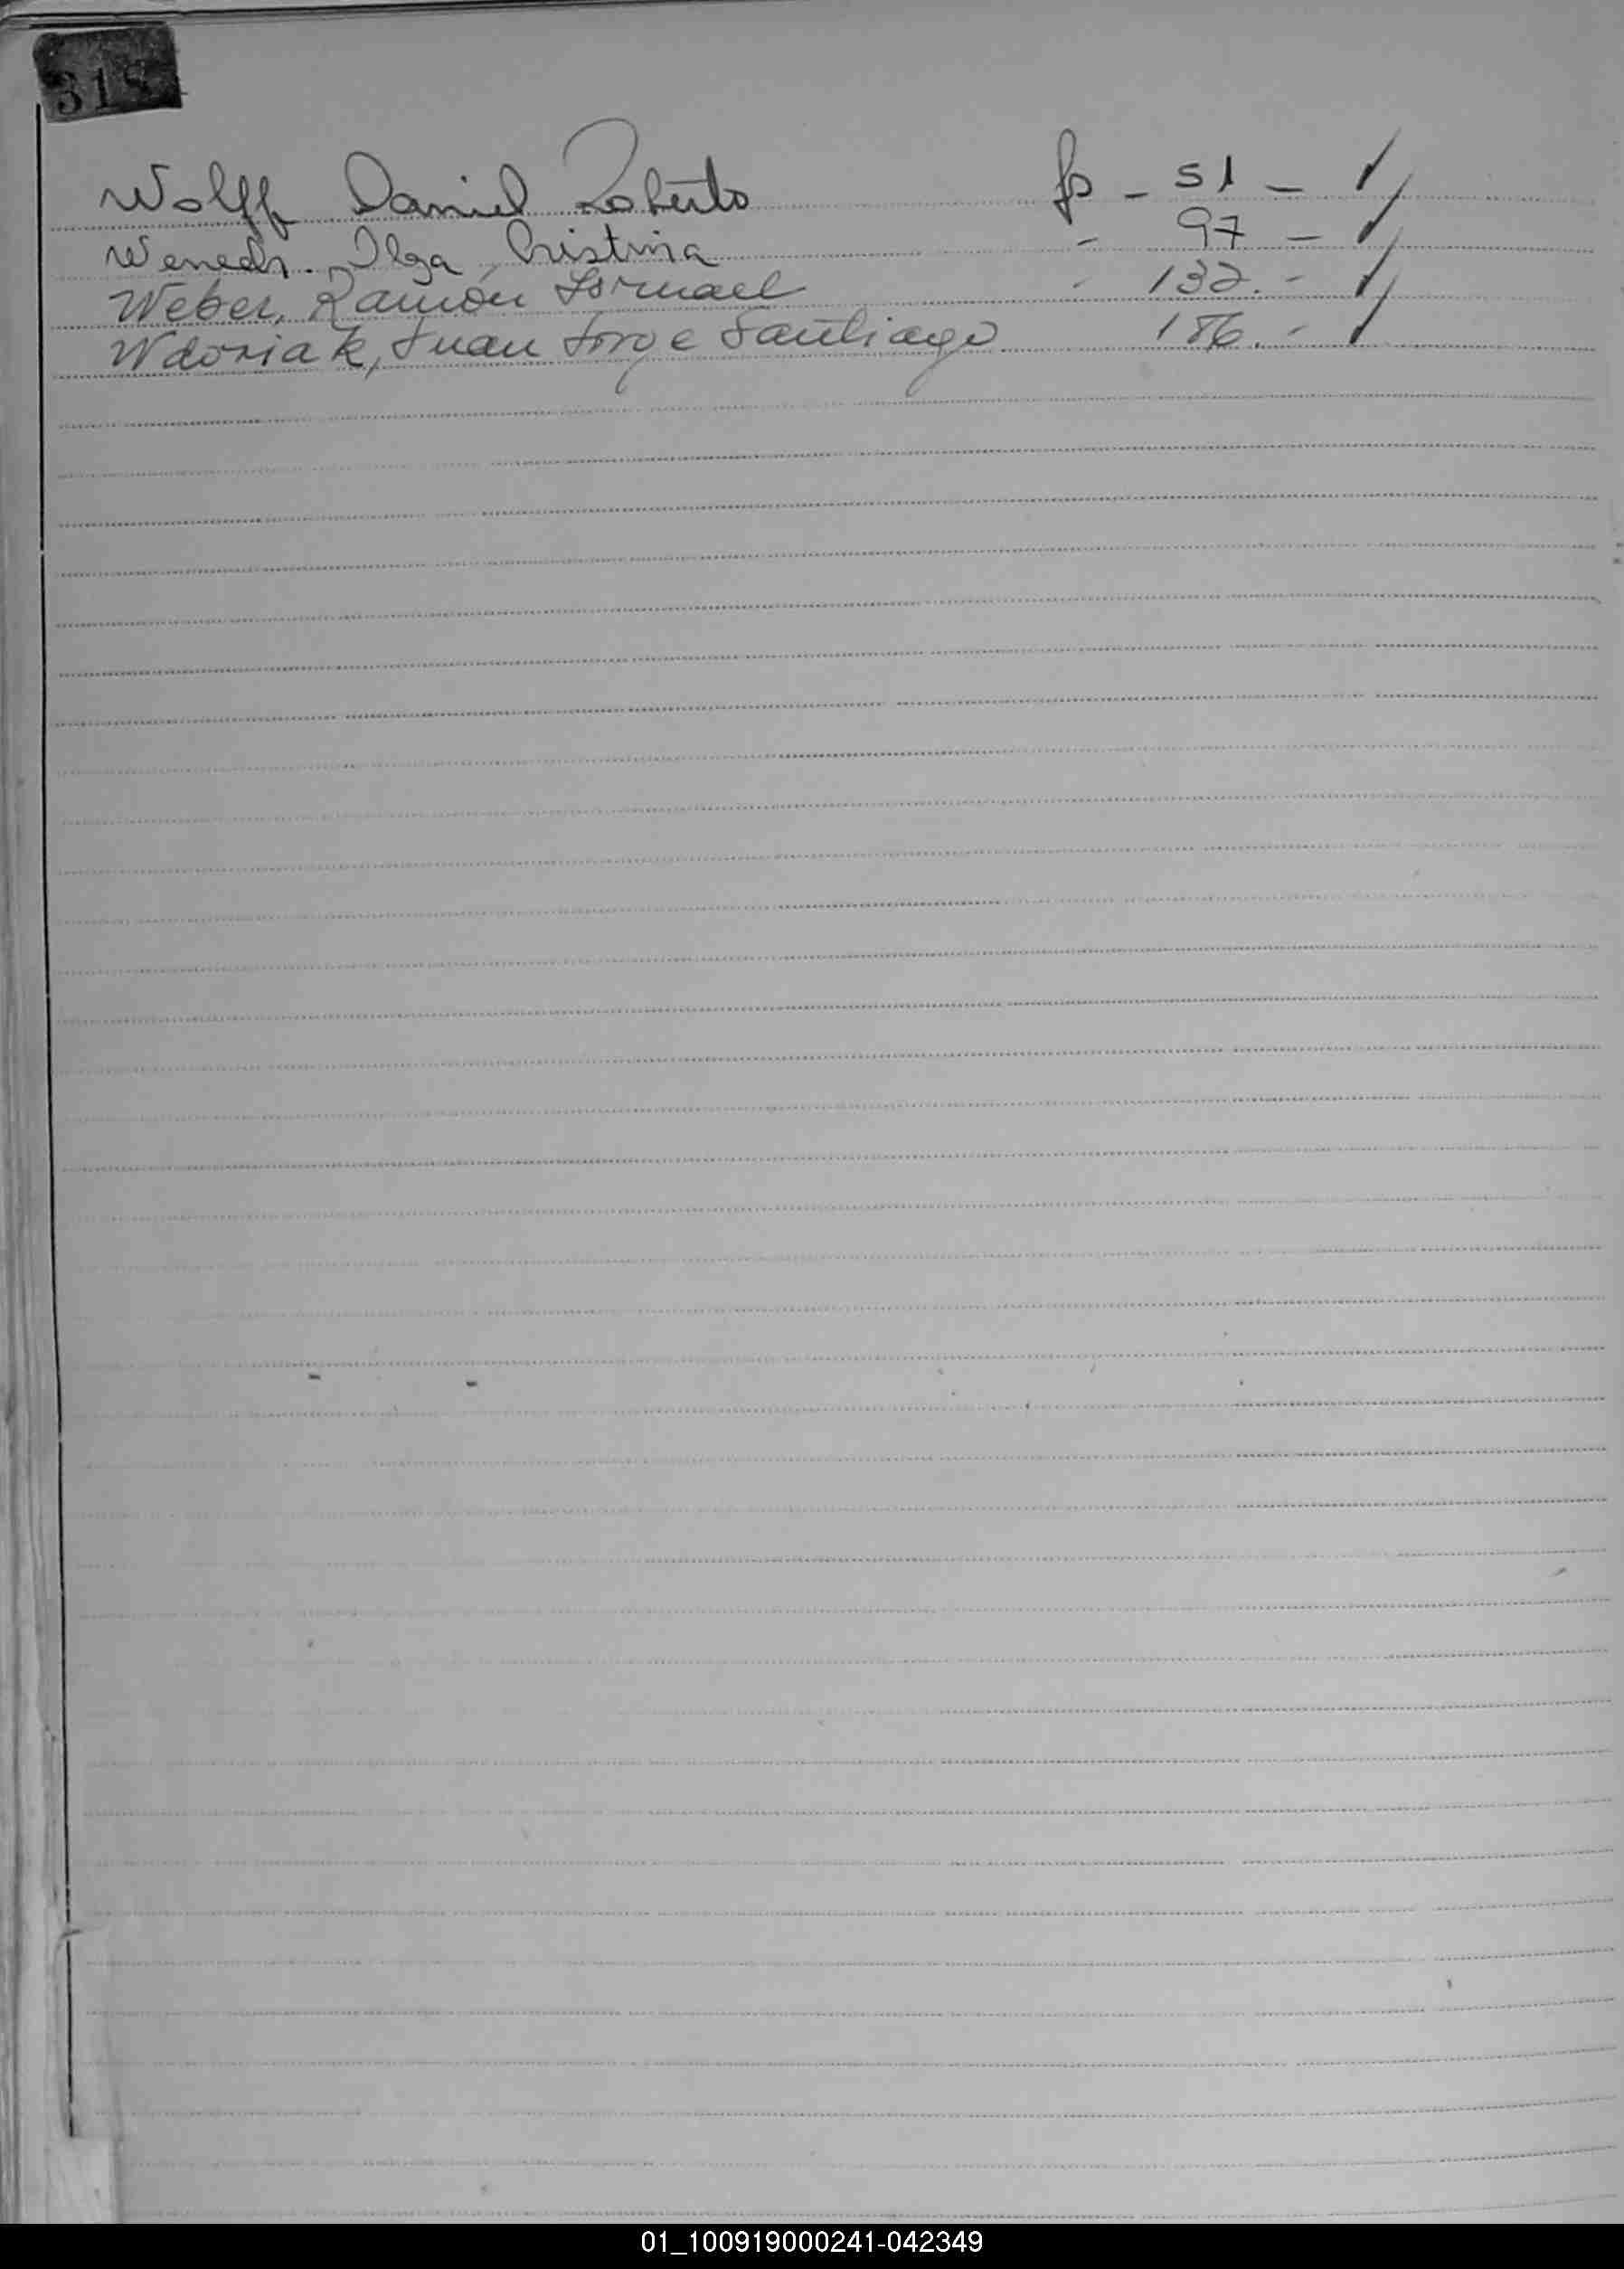 318
Wolff Daniel Roberto fs - 51 -
Ilga Cristina - 97 -
Weber, Ramón Ismael - 132. -
Wdoriak, Juan Jorge Santiago 186. -
01_100919000241-042349